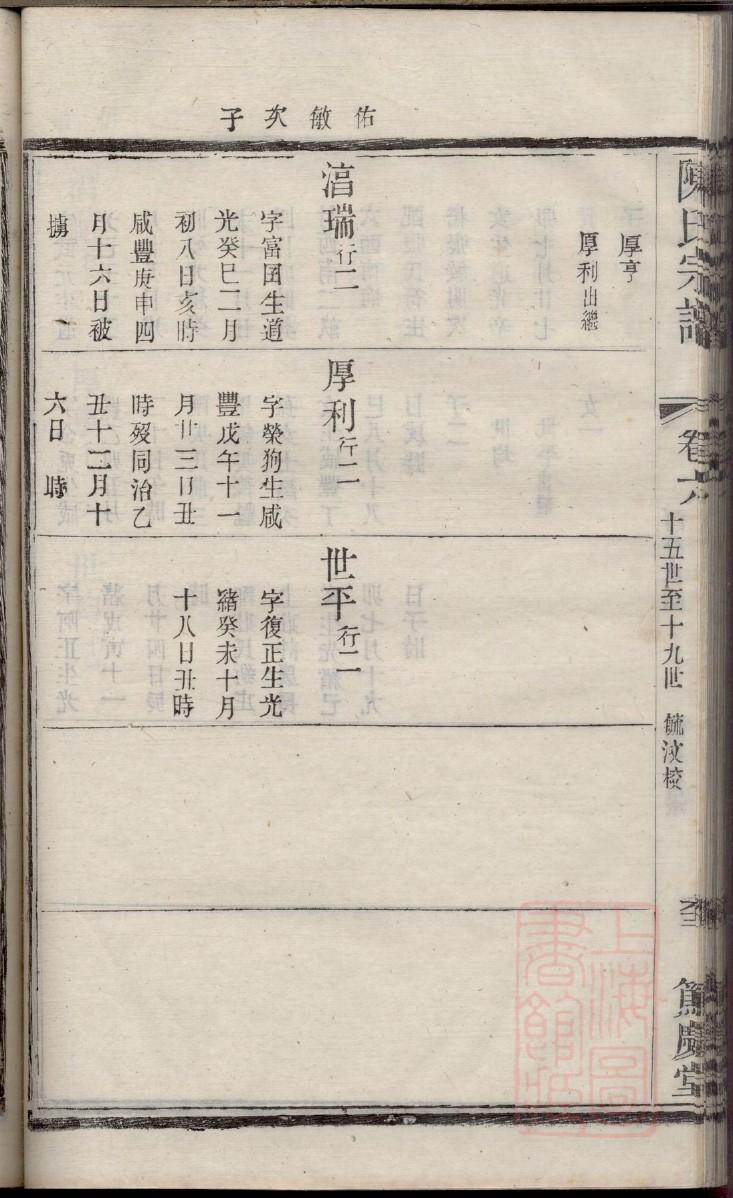 陳氏宗譜
卷六
十五世至十九世
毓汶校
篤慶堂
佑敏次子
厚亨
厚利出繼
湻瑞行二
字富囝生道
光癸巳二月
初八日亥時
咸豐庚申四
月十六日被
擄
厚利行二
字榮狗生咸
豐戊午十一
月廿三日丑
時歿同治乙
丑十二月十
六日 時
世平行二
字復正生光
緒癸未十月
十八日丑時
上海圖書館藏